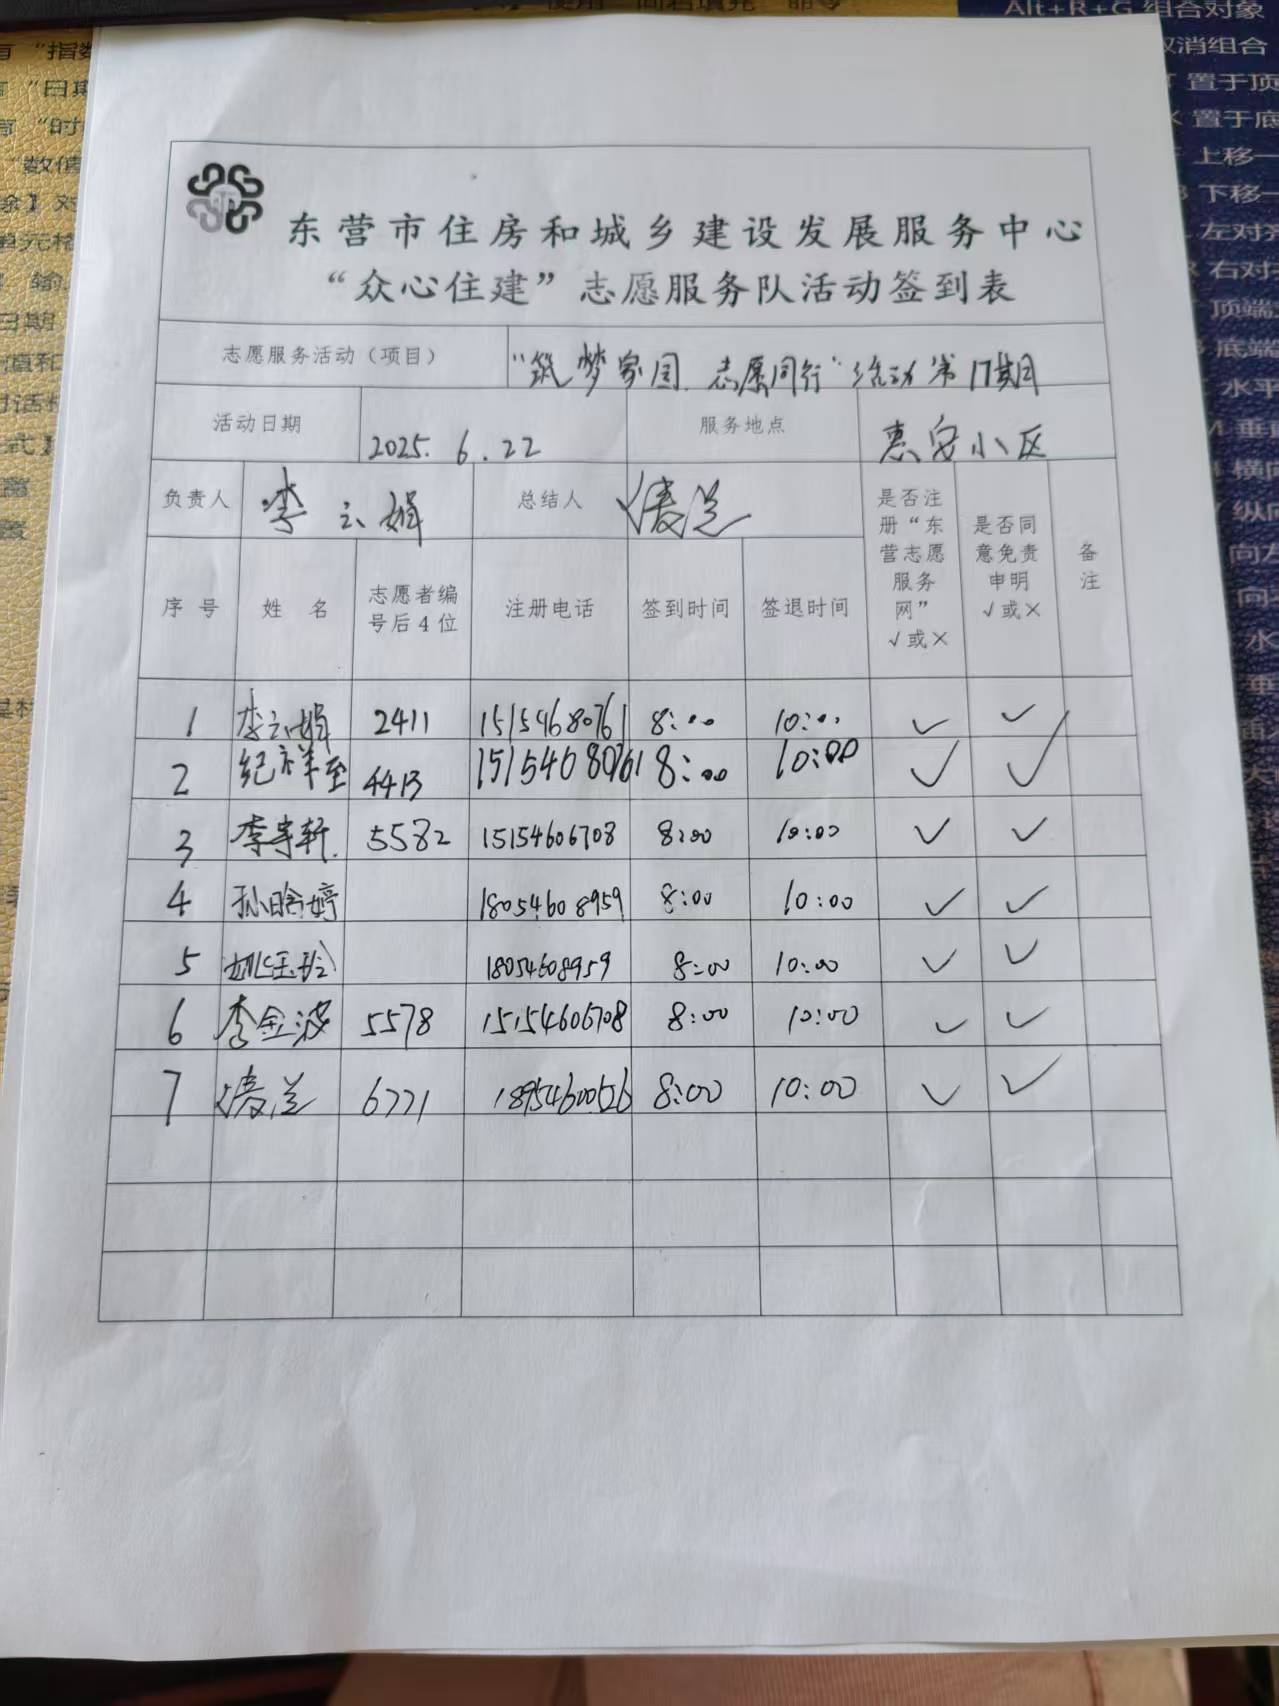 Alt+R+G 组合对象
取消组合
"指数
置于顶
"日期
置于底
"时
上移一
"数值
下移一
左对齐
单元格
右对
顶端
日期
底端
水平
垂直
横向
纵向
向左
东营市住房和城乡建设发展服务中心
“众心住建”志愿服务队活动签到表
志愿服务活动（项目） “筑梦家园 志愿同行”活动第17期
活动日期 2025.6.22 服务地点 惠安小区
负责人 李云娟 总结人
是否注册“东营志愿服务网” √或× 是否同意免责申明 √或× 备注
序号 姓名 志愿者编号后4位 注册电话 签到时间 签退时间
1 李云娟 2411 15154680761 8:00 10:00 ✓ ✓
2 纪祥至 4413 15154680761 8:00 10:00 ✓ ✓
3 李宇轩 5582 15154606708 8:00 10:00 ✓ ✓
4 孙晗婷 18054608959 8:00 10:00 ✓ ✓
5 18054608959 8:00 10:00 ✓ ✓
6 李金波 5578 15154606708 8:00 10:00 ✓ ✓
7 6771 8:00 10:00 ✓ ✓